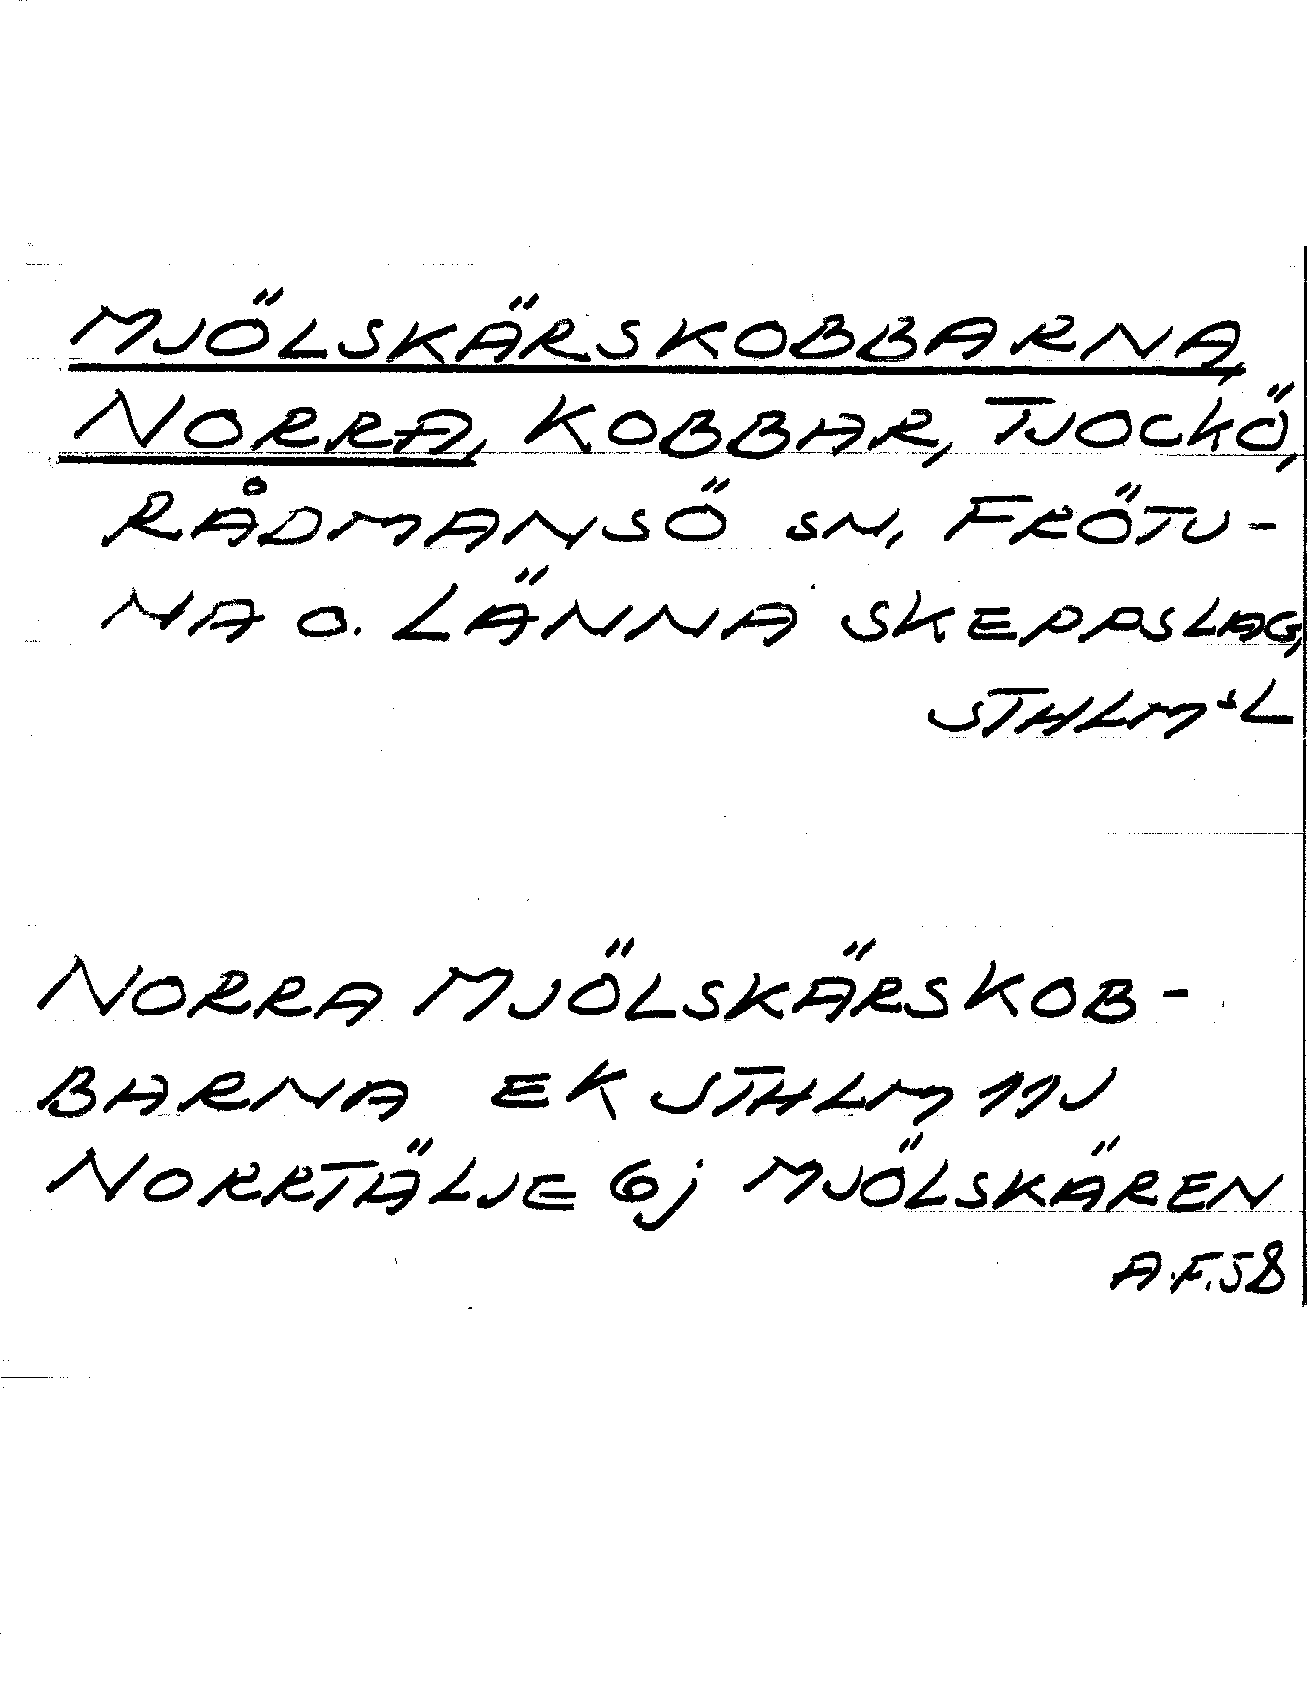 MJÖLSKÄRSKOBBARNA,
NORRA, KOBBAR, TJOCKÖ,
RÅDMANSÖ SN, FRÖTU-
NA O. LÄNNA SKEPPSLAG,
STHLMSL
NORRA MJÖLSKÄRSKOB-
BARNA EK STHLM 11J
NORRTÄLJE 6j MJÖLSKÄREN
A.F.58